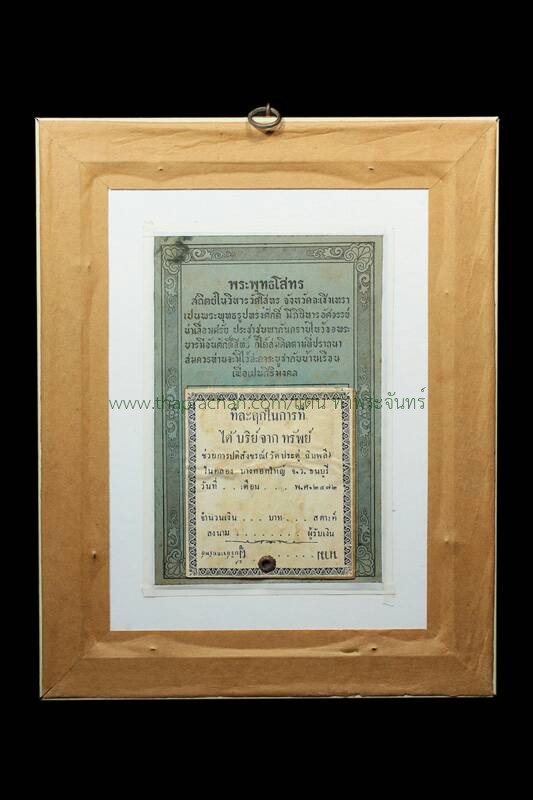 พระพุทธโสทร
สถิตย์ในวิหารวัดโสทร จังหวัดฉะเชิงเทรา
เปนพระพุทธรูปทรงศักดิ์ มีอภินิหารอัศจรรย์
น่าเลื่อมศรัย ประชาชนพากันกราบไหว้ขอพระ
บารมีอันศักดิ์สิทธิ์ ก็ได้สมคิดตามที่ปราถนา
สมควรท่านจะมีไว้สการะบูชากับบ้านเรือน
เพื่อเปนศิริมงคล
www.thaprachan.com/แดน ท่าพระจันทร์
ที่ละฤกในการที่
ได้บริย์จาก ทรัพย์
ช่วยการปติสังขรณ์ (วัดประดู่ ฉิมพลี)
ในคลอง บางกอกใหญ่ จ.ว. ธนบุรี
วันที่ . . เดือน . . . . พ.ศ. ๒๔๗๒
จำนวนเงิน . . . บาท . . . สตางค์
ลงนาม . . . . . . . . . ผู้รับเงิน